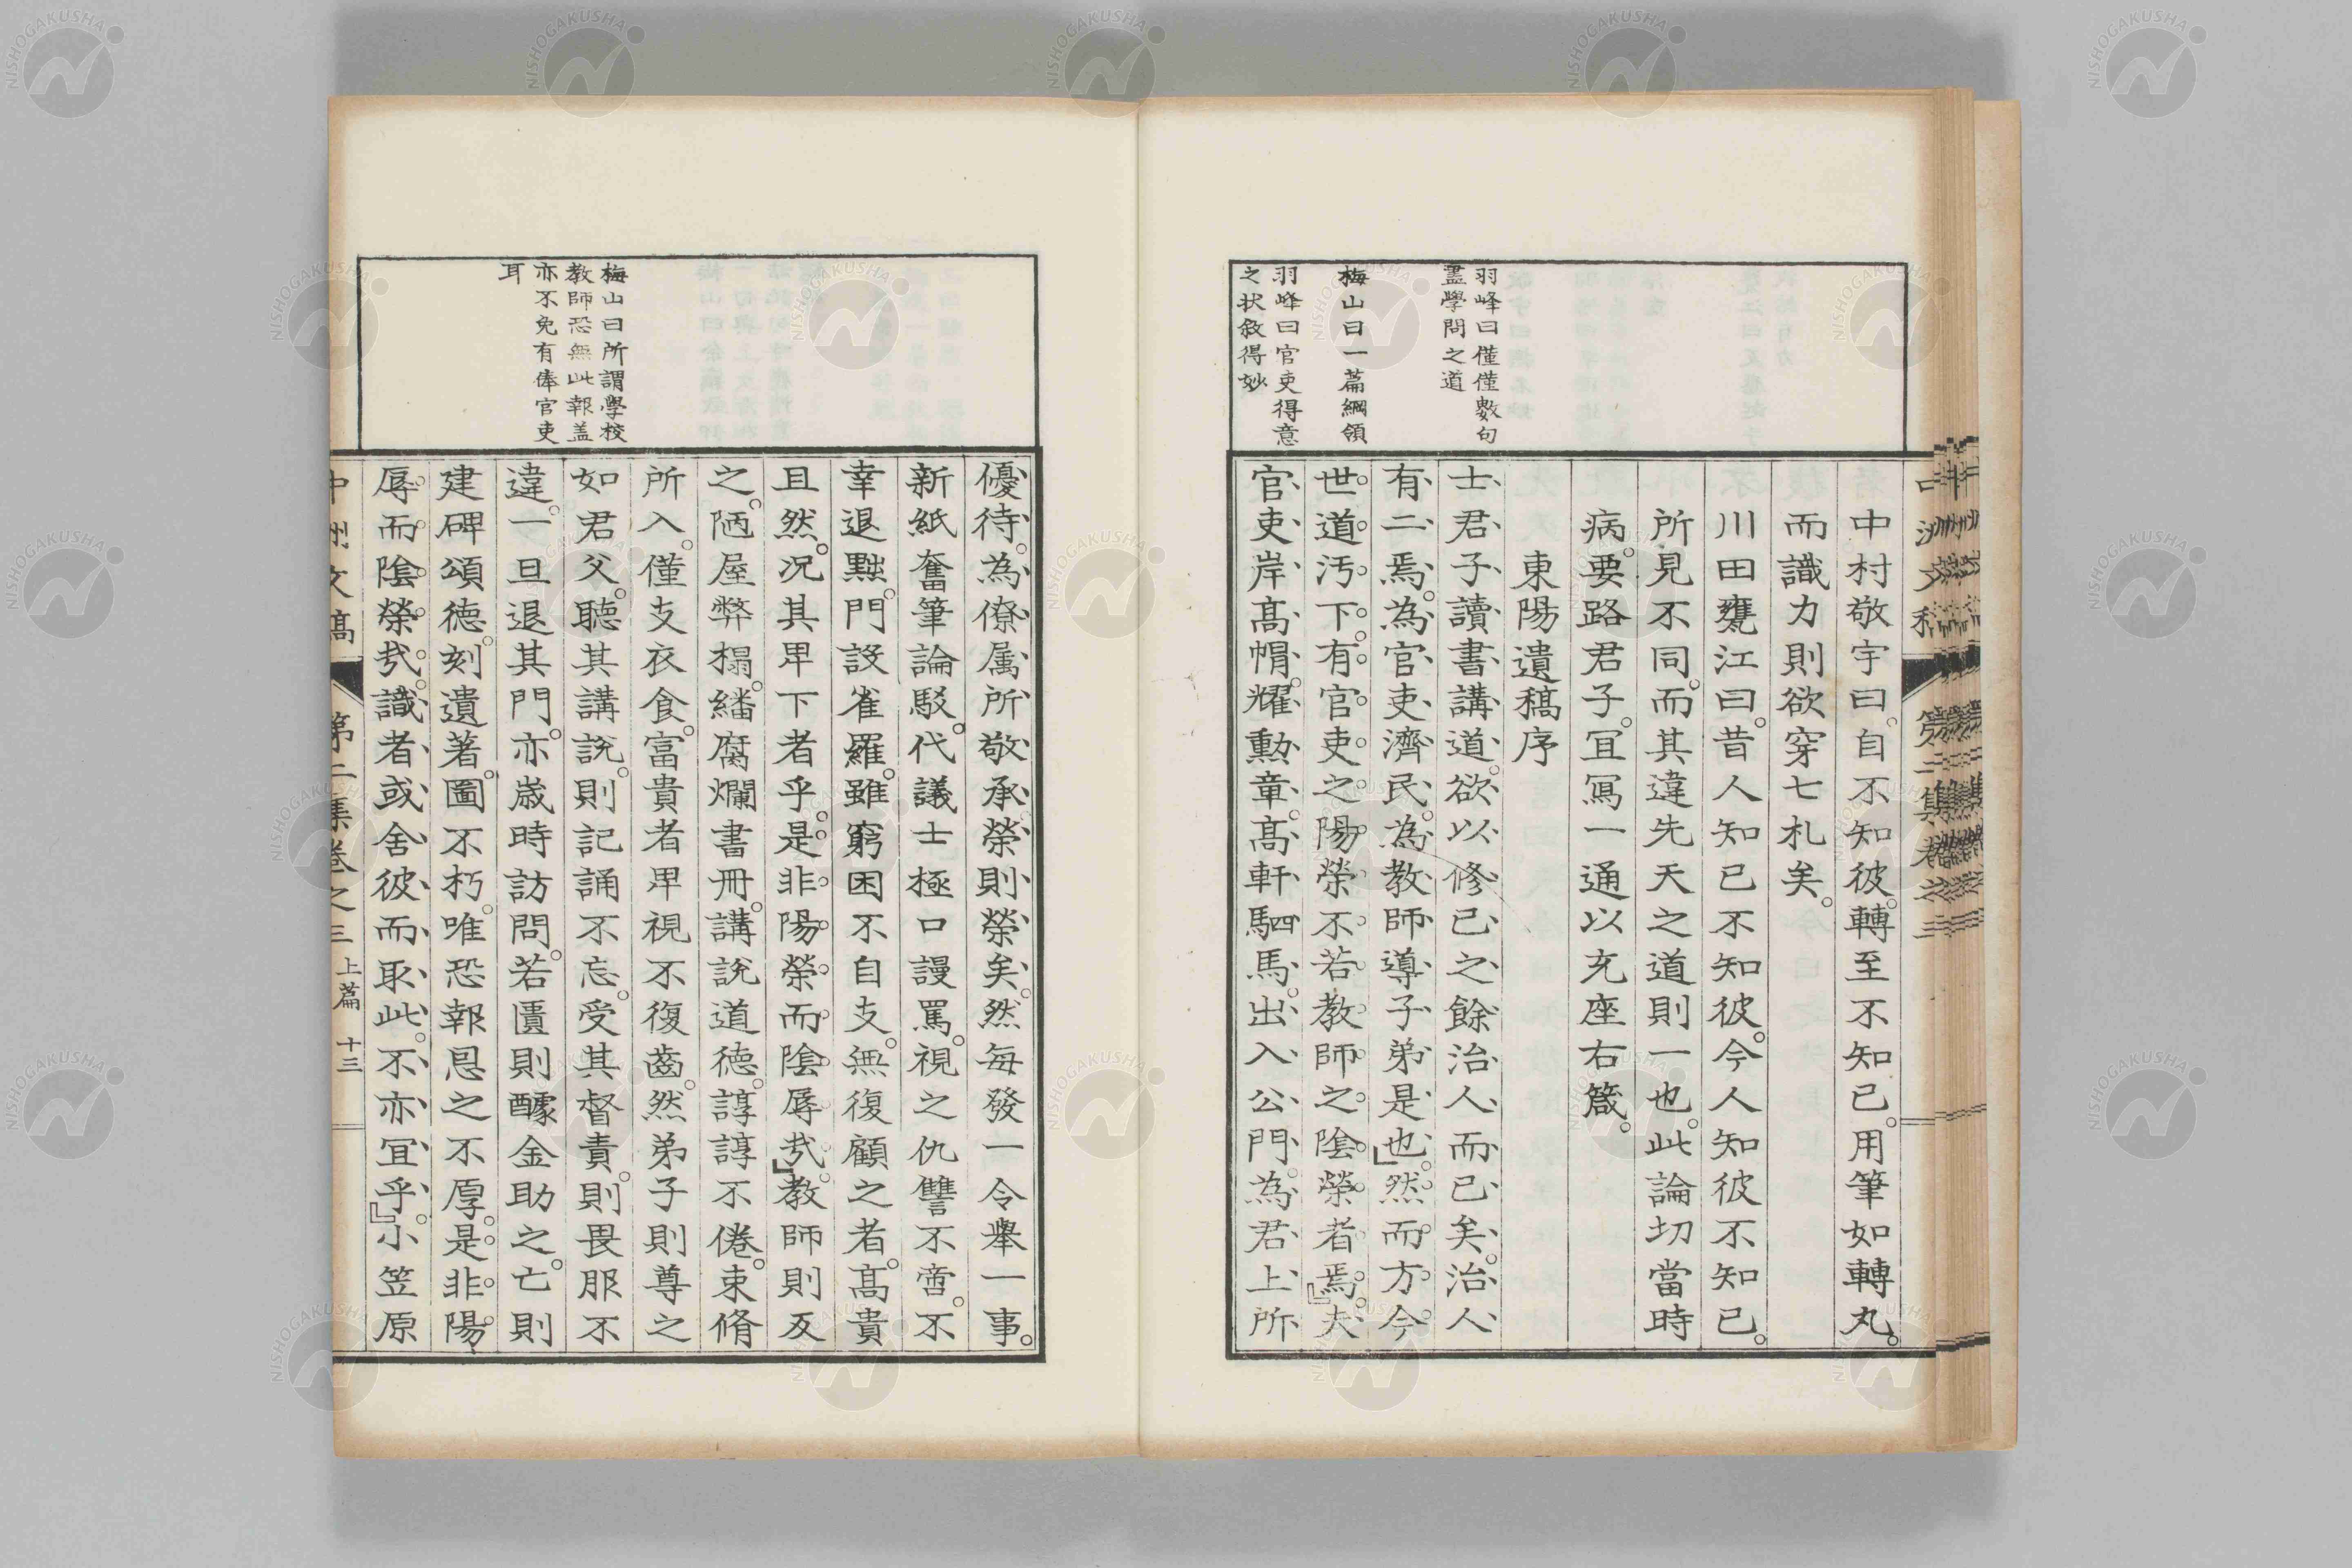 羽峰曰僅僅數句
盡學問之道
梅山曰一篇綱領
羽峰曰官吏得意
之狀敘得妙
中村敬宇曰。自不知彼。轉至不知己。用筆如轉丸。
而識力則欲穿七札矣。
川田甕江曰。昔人知己不知彼。今人知彼不知己。
所見不同。而其違先天之道則一也。此論切當時
病。要路君子。冝冩一通以充座右箴。
東陽遺稿序
士君子讀書講道。欲以修己之餘治人而已矣。治人
有二焉。為官吏濟民。為教師導子弟是也。』然而方今
世道汚下。有官吏之陽榮不若教師之陰榮者焉。』夫
官吏岸髙帽。耀勳章。髙軒駟馬。出入公門。為君上所
梅山曰所謂學校
教師恐無此報盖
亦不免有俸官吏
耳
優待。為僚属所敬承。榮則榮矣。然每發一令舉一事。
新紙奮筆論駁。代議士極口謾罵。視之仇讐不啻。不
幸退黜。門設雀羅。雖窮困不自支。無復顧之者。髙貴
且然。况其卑下者乎。是非陽榮而陰辱㢤。』教師則反
之。陋屋弊榻。繙腐爛書冊。講說道德。諄諄不倦。束脩
所入。僅支衣食。富貴者卑視不復齒。然弟子則尊之
如君父。聽其講說。則記誦不忘。受其督責。則畏服不
違。一旦退其門。亦歳時訪問。若匱則醵金助之。亡則
建碑頌德。刻遺著。圖不朽。唯恐報恩之不厚。是非陽
辱而陰榮㢤。識者或舍彼而取此。不亦冝乎。』小笠原
中洲文稿 第二集卷之三 上篇 十三
NISHOGAKUSHA